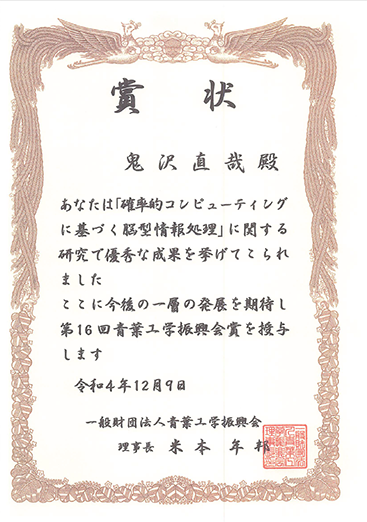 賞状
鬼沢直哉殿
あなたは「確率的コンピューティング
に基づく脳型情報処理」に関する
研究で優秀な成果を挙げてこられ
ました
ここに今後の一層の発展を期待し
第16回青葉工学振興会賞を授与
します
令和4年12月9日
一般財団法人青葉工学振興会
理事長 米本年邦